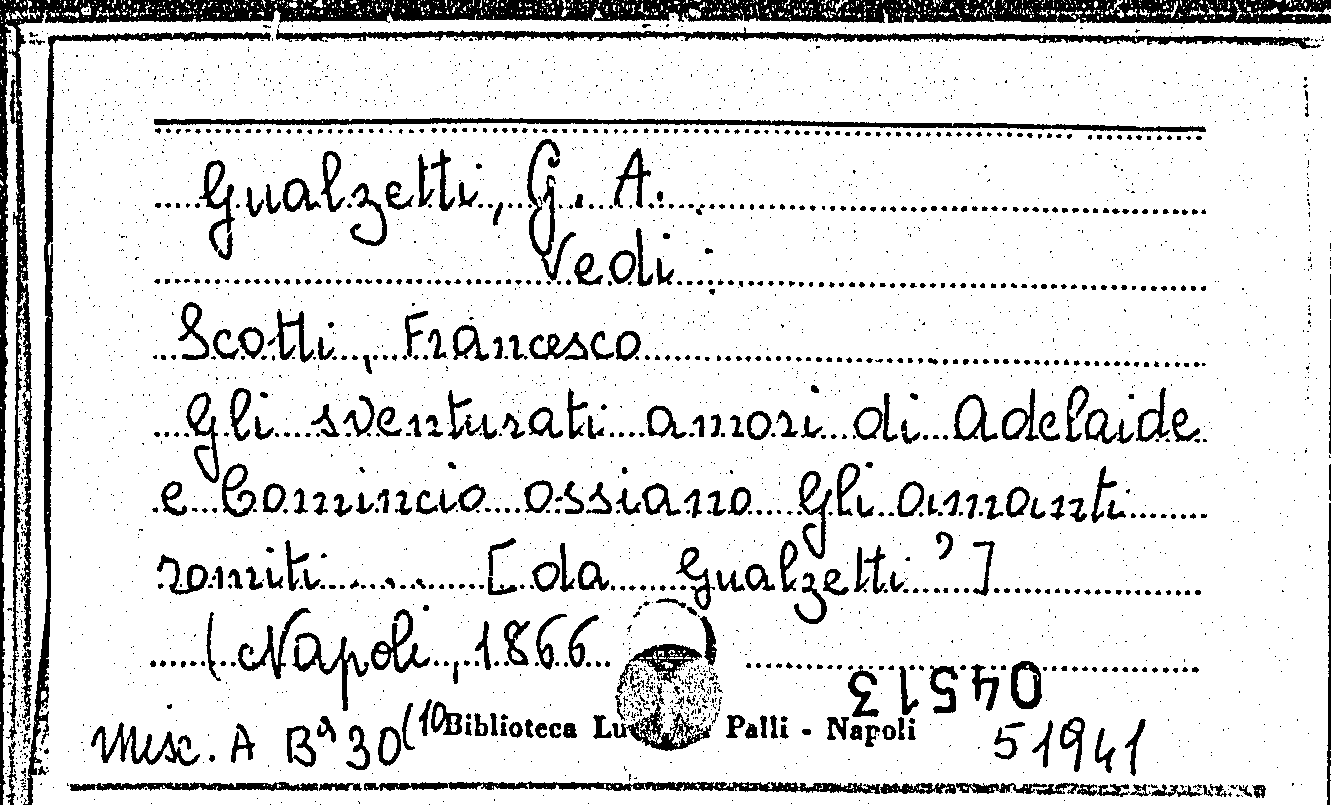 Gualzetti, G. A.
Vedi:
Scotti, Francesco
Gli sventurati amori di Adelaide
e Comincio ossiano gli amanti
romiti.... [da Gualzetti?]
(Napoli, 1866
04513
Misc. A Bª 30(10 Biblioteca Lu Palli - Napoli 51941